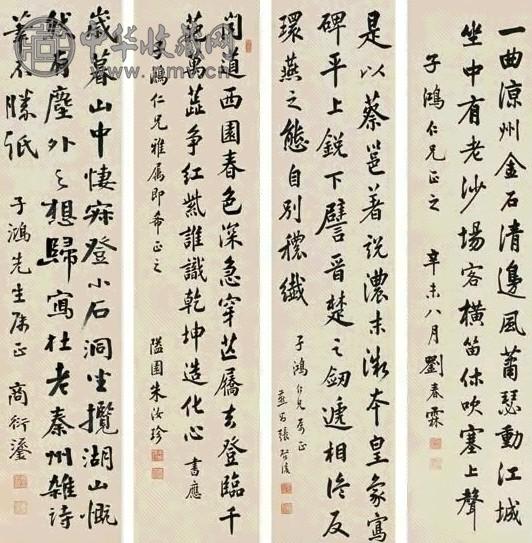 一曲涼州金石清邊風蕭瑟動江城
坐中有老沙場客橫笛休吹塞上聲
子鴻仁兄正之 辛未八月劉春霖
是以蔡邕著說濃未漱本皇象寫
碑平上銳下譬晉楚之劔遞相
環燕之態自別穠纖
子鴻仁兄 正
張啓後
聞道西園春色深急穿芒屩去登臨千
葩萬蕊爭紅紫誰識乾坤造化心 書應
子鴻仁兄雅屬即希正之 隘園朱汝珍
歲暮山中悽寂登小石洞坐攬湖山慨
然有塵外之想歸寫杜老秦州雜詩
筆不勝紙 子鴻先生屬正 商衍鎏
中华收藏网